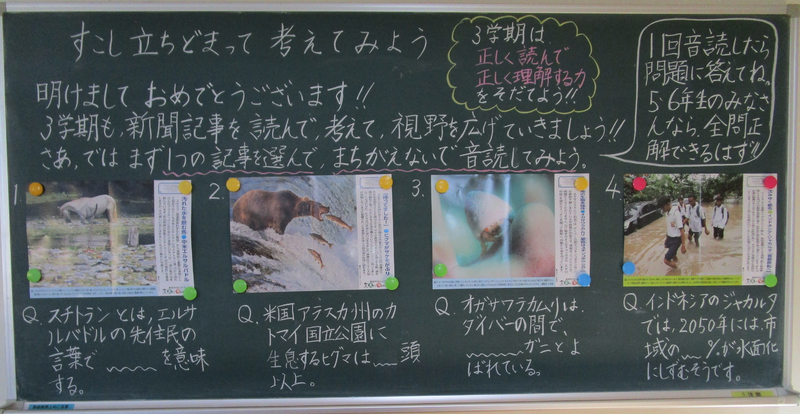 すこし立ちどまって 考えてみよう
3学期は、
正しく読んで
正しく理解する力
をそだてよう!!
1回音読したら
問題に答えてね。
5・6年生のみなさ
んなら、全問正
解できるはず!!
明けまして おめでとうございます!!
3学期も、新聞記事を 読んで、考えて、視野を広げていきましょう!!
さあ、では まず1つの 記事を選んで、まちがえないで 音読してみよう。
1.
2.
3.
4.
Q. スチトランとは、エルサ
ルバドルの先住民の
言葉で を意味
する。
Q. 米国アラスカ州のカ
トマイ国立公園に
生息するヒグマは 頭
以上。
Q. オガサワラカムリは、
ダイバーの間で、
ガニとよ
ばれている。
Q. インドネシアのジャカルタ
では、2050年には、市
域の %が水面化
にしずむそうです。